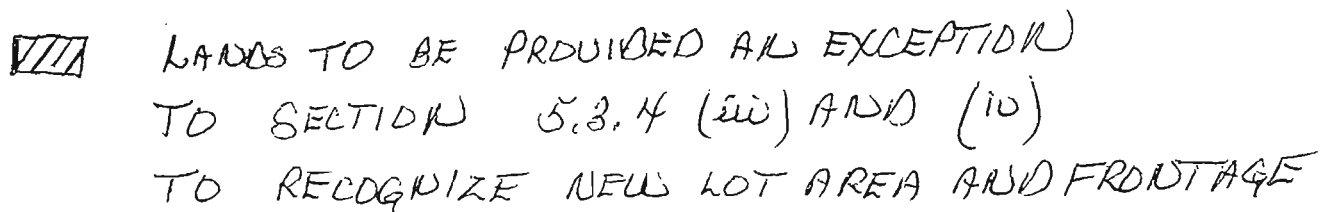 LANDS TO BE PROVIDED AN EXCEPTION
TO SECTION 5.3.4 (iii) AND (iv)
TO RECOGNIZE NEW LOT AREA AND FRONTAGE